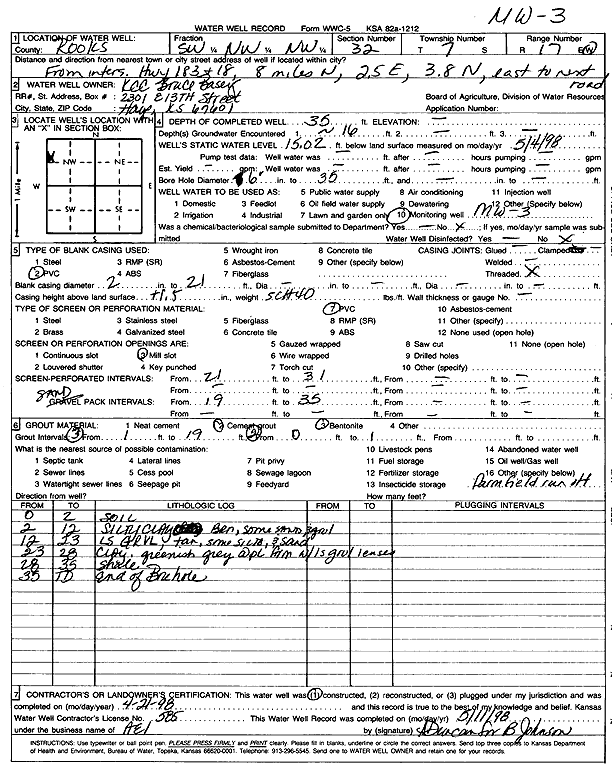 MW-3
WATER WELL RECORD Form WWC-5 KSA 82a-1212
1 LOCATION OF WATER WELL: Fraction Section Number Township Number Range Number
County: ROOKS SW ¼ NW ¼ NW ¼ 32 T 7 S R 17 E/W
Distance and direction from nearest town or city street address of well if located within city?
From inters. Hwy 183 & 18, 8 miles N, 2.5 E, 3.8 N, east to next road
2 WATER WELL OWNER: KCC Bruce Basye
RR#, St. Address, Box # : 2301 E 13TH Street Board of Agriculture, Division of Water Resources
City, State, ZIP Code : Hays, KS 67601 Application Number:
3 LOCATE WELL'S LOCATION WITH AN "X" IN SECTION BOX:
N
X
NW NE
W E
SW SE
S
1 Mile
4 DEPTH OF COMPLETED WELL 35 ft. ELEVATION: —
Depth(s) Groundwater Encountered 1. ~16 ft. 2. — ft. 3. — ft.
WELL'S STATIC WATER LEVEL 15.02 ft. below land surface measured on mo/day/yr 5/4/98
Pump test data: Well water was — ft. after — hours pumping — gpm
Est. Yield — gpm: Well water was — ft. after — hours pumping — gpm
Bore Hole Diameter 6 in. to 35 ft., and — in. to — ft.
WELL WATER TO BE USED AS: 5 Public water supply 8 Air conditioning 11 Injection well
1 Domestic 3 Feedlot 6 Oil field water supply 9 Dewatering 12 Other (Specify below)
2 Irrigation 4 Industrial 7 Lawn and garden only 10 Monitoring well MW-3
Was a chemical/bacteriological sample submitted to Department? Yes — No X ; If yes, mo/day/yr sample was submitted Water Well Disinfected? Yes — No X
5 TYPE OF BLANK CASING USED: 5 Wrought iron 8 Concrete tile CASING JOINTS: Glued — Clamped —
1 Steel 3 RMP (SR) 6 Asbestos-Cement 9 Other (specify below) Welded —
2 PVC 4 ABS 7 Fiberglass Threaded X
Blank casing diameter 2 in. to 21 ft., Dia — in. to — ft., Dia — in. to — ft.
Casing height above land surface +1.5 in., weight SCH40 lbs./ft. Wall thickness or gauge No. —
TYPE OF SCREEN OR PERFORATION MATERIAL: 7 PVC 10 Asbestos-cement
1 Steel 3 Stainless steel 5 Fiberglass 8 RMP (SR) 11 Other (specify)
2 Brass 4 Galvanized steel 6 Concrete tile 9 ABS 12 None used (open hole)
SCREEN OR PERFORATION OPENINGS ARE: 5 Gauzed wrapped 8 Saw cut 11 None (open hole)
1 Continuous slot 3 Mill slot 6 Wire wrapped 9 Drilled holes
2 Louvered shutter 4 Key punched 7 Torch cut 10 Other (specify)
SCREEN-PERFORATED INTERVALS: From 21 ft. to 31 ft., From — ft. to — ft.
From — ft. to — ft., From — ft. to — ft.
SAND GRAVEL PACK INTERVALS: From 19 ft. to 35 ft., From — ft. to — ft.
From — ft. to — ft., From — ft. to — ft.
6 GROUT MATERIAL: 1 Neat cement 2 Cement grout 3 Bentonite 4 Other
Grout Intervals: 3 From 1 ft. to 19 ft., 2 From 0 ft. to 1 ft., From ft. to ft.
What is the nearest source of possible contamination: 10 Livestock pens 14 Abandoned water well
1 Septic tank 4 Lateral lines 7 Pit privy 11 Fuel storage 15 Oil well/Gas well
2 Sewer lines 5 Cess pool 8 Sewage lagoon 12 Fertilizer storage 16 Other (specify below)
3 Watertight sewer lines 6 Seepage pit 9 Feedyard 13 Insecticide storage Farmfield
Direction from well? How many feet?
FROM TO LITHOLOGIC LOG FROM TO PLUGGING INTERVALS
0 2 SOIL
2 12 SILTY CLAY Brn, some sand & grvl
12 23 LS GRVL, tan, some silt & sand
23 28 Clay, greenish grey w/ls grvl lenses
28 35 Shale
35 TD end of Borehole
7 CONTRACTOR'S OR LANDOWNER'S CERTIFICATION: This water well was (1) constructed, (2) reconstructed, or (3) plugged under my jurisdiction and was
completed on (mo/day/year) 4-21-98 and this record is true to the best of my knowledge and belief. Kansas
Water Well Contractor's License No. 585 This Water Well Record was completed on (mo/day/yr) 5/11/98
under the business name of AEI by (signature) Duncan for B Johnson
INSTRUCTIONS: Use typewriter or ball point pen. PLEASE PRESS FIRMLY and PRINT clearly. Please fill in blanks, underline or circle the correct answers. Send top three copies to Kansas Department
of Health and Environment, Bureau of Water, Topeka, Kansas 66620-0001. Telephone: 913-296-5545. Send one to WATER WELL OWNER and retain one for your records.